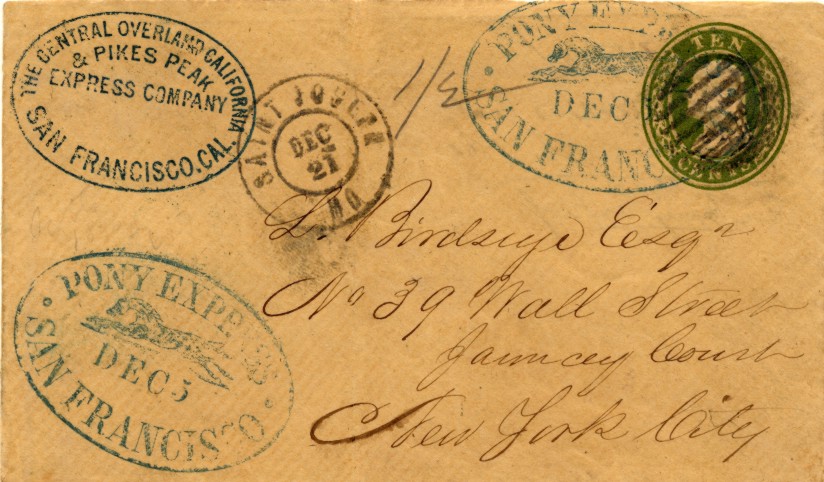 THE CENTRAL OVERLAND CALIFORNIA
& PIKES PEAK
EXPRESS COMPANY
SAN FRANCISCO.CAL.
SAINT JOSEPH
DEC
21
MO
1/2
PONY EXPRE
DEC
SAN FRANC
TEN
CENTS
L. Birdseye Esqr
No 39 Wall Street
Jauncey Court
New York City
PONY EXPRESS
DEC 5
SAN FRANCISCO